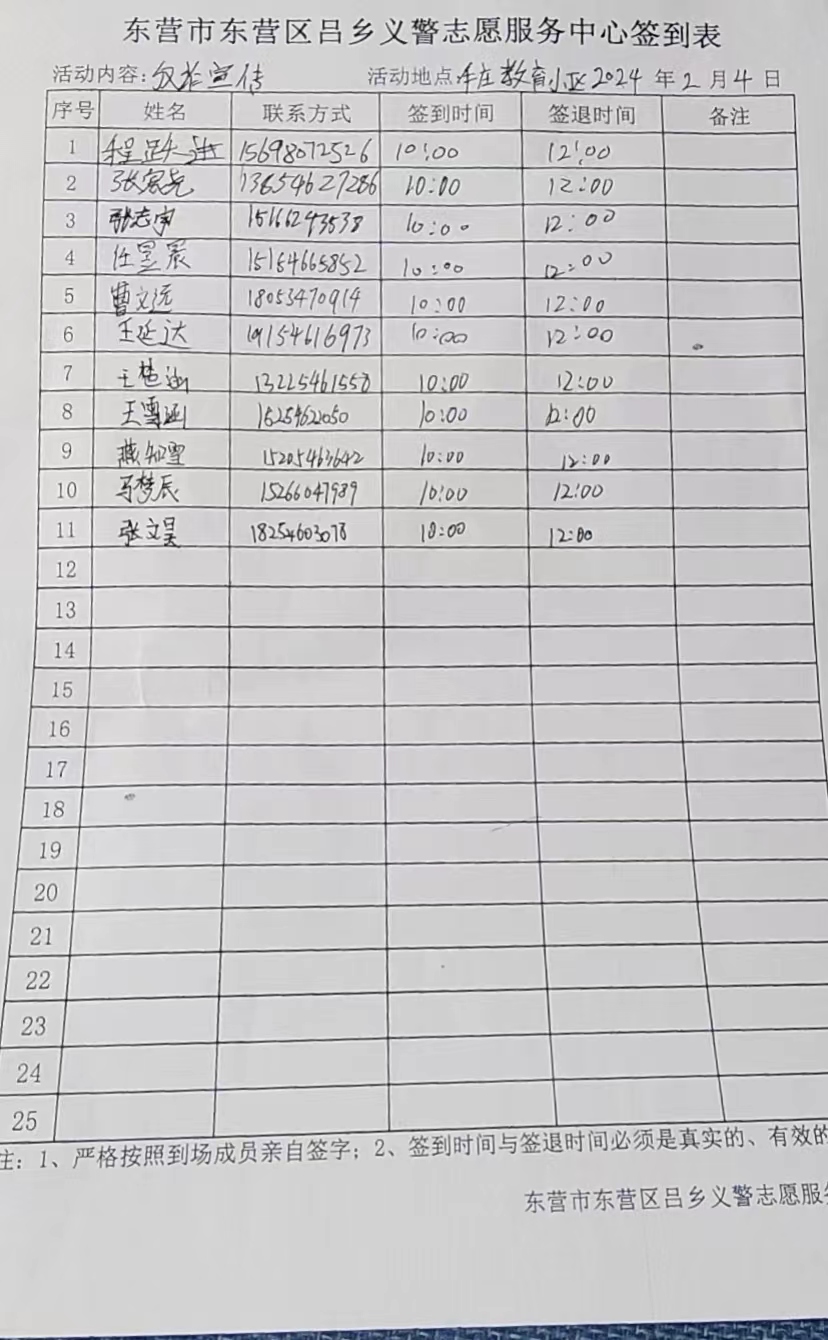 东营市东营区吕乡义警志愿服务中心签到表
活动内容:反诈宣传 活动地点 牛庄教育小区 2024 年 2 月 4 日
序号 姓名 联系方式 签到时间 签退时间 备注
1 程跃进 15698072526 10:00 12:00
2 张家尧 13854627286 10:00 12:00
3 张志宇 15166293538 10:00 12:00
4 任昱宸 15154665852 10:00 12:00
5 曹文远 18053470914 10:00 12:00
6 王延达 19154616973 10:00 12:00
7 王楚涵 13225461558 10:00 12:00
8 王雪涵 10:00 12:00
9 燕知 15205463642 10:00 12:00
10 马梦辰 15266047989 10:00 12:00
11 张文昊 18254603078 10:00 12:00
12
13
14
15
16
17
18
19
20
21
22
23
24
25
注:1、严格按照到场成员亲自签字;2、签到时间与签退时间必须是真实的、有效的
东营市东营区吕乡义警志愿服务